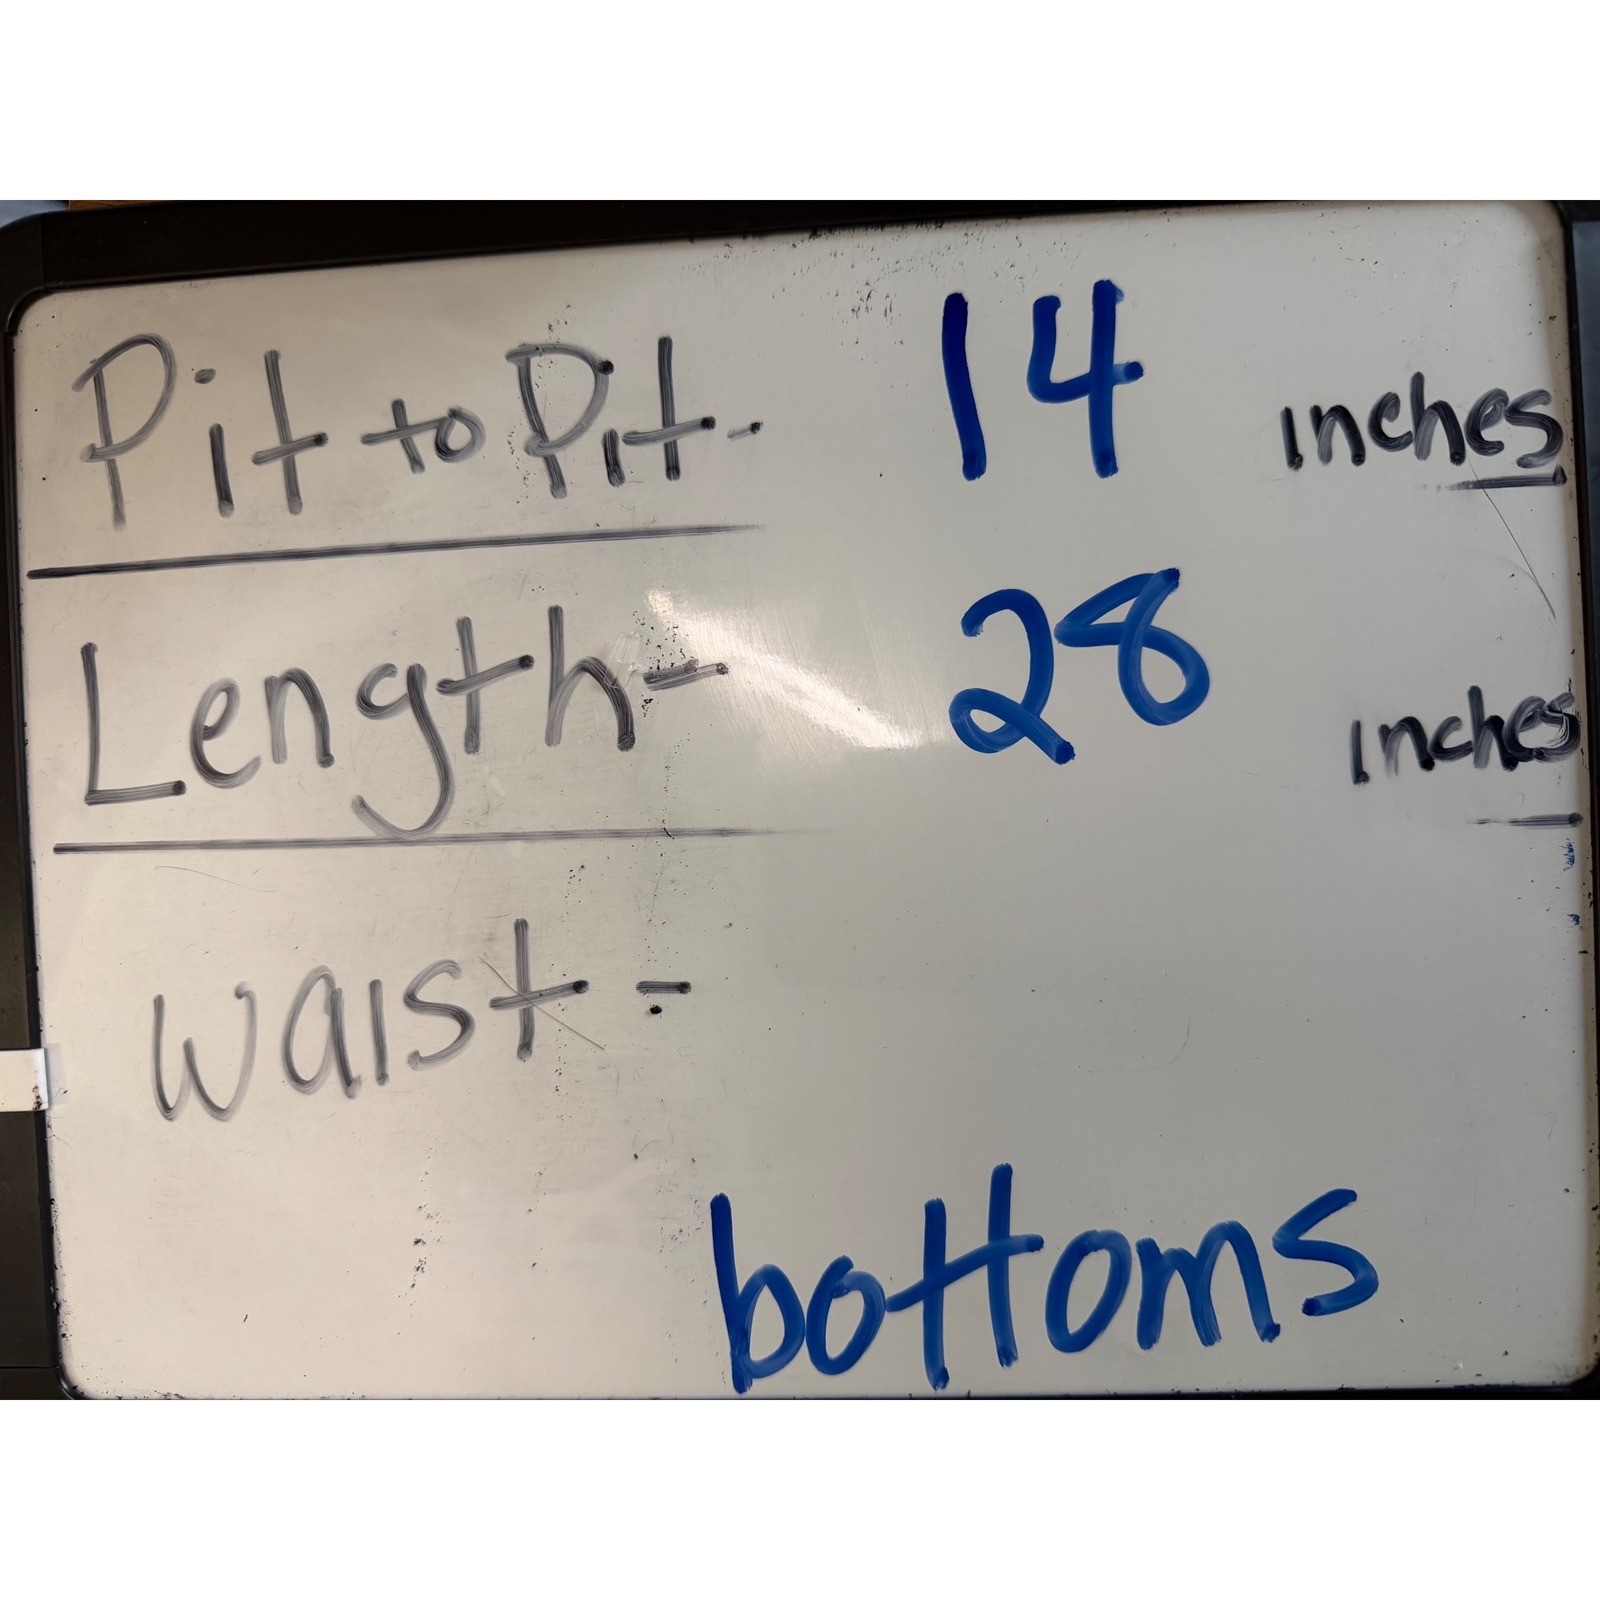 Pit to Pit - 14 inches
Length - 28 inches
Waist -
bottoms